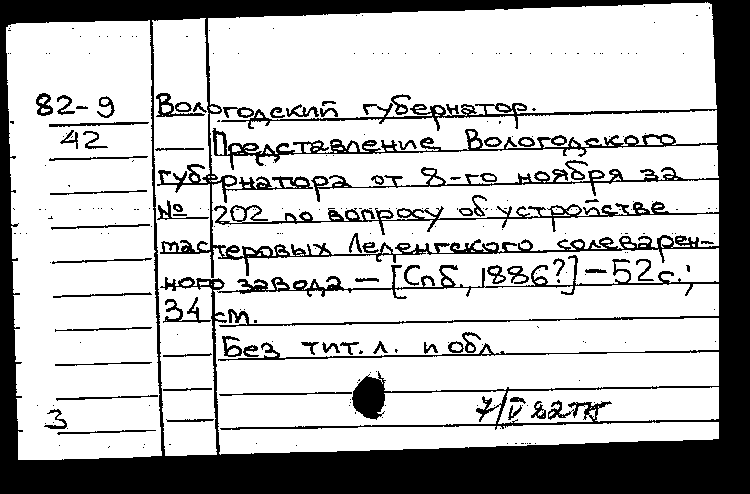 82-9 Вологодский губернатор.
42 Представление Вологодского
губернатора от 8-го ноября за
№ 202 по вопросу об устройстве
мастеровых Леденгского солеварен-
ного завода. — [Спб., 1886?] — 52 с.;
34 см.
Без тит. л. и обл.
3 7/V 82